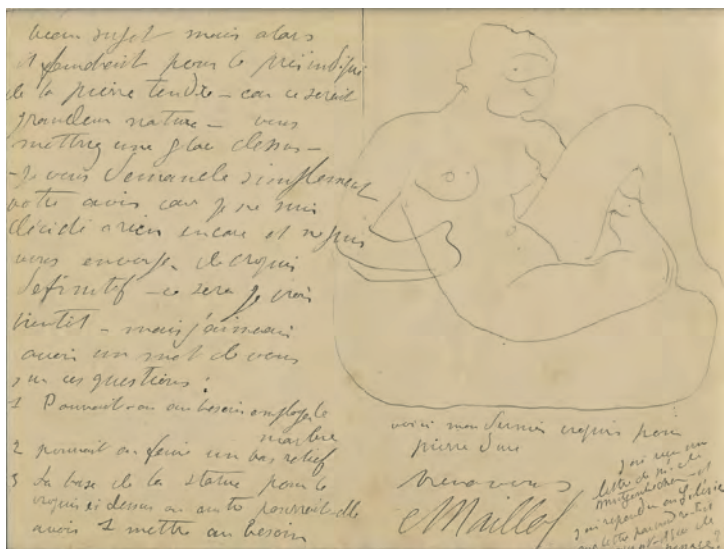 beau sujet mais alors
il faudrait pour le
de la pierre tendre – car ce serait
grandeur nature – vous
mettrez une glace dessus –
– je vous demande simplement
votre avis car je ne suis
décidé a rien encore et ne puis
vous envoyer de croquis
définitif – ce sera je crois
bientôt – mais j'aimerais
avoir un mot de vous
sur ces questions :
1 Pourrait-on au besoin employer le
marbre
2 pourrait on faire un bas relief
3 La base de la statue pour le
croquis ci dessus ou autre pourrait elle
avoir 1 mettre au besoin
voici mon dernier croquis pour
pierre dure
Maillol
j'ai reçu une
lettre de
et
j'ai répondu